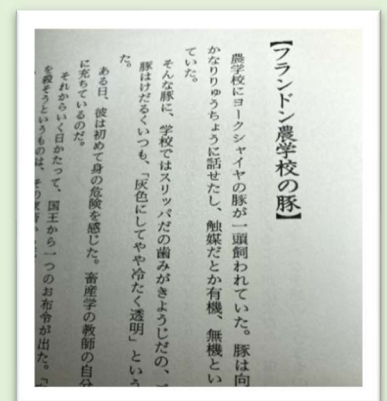 【フランドン農学校の豚】
農学校にヨークシャイヤの豚が一頭飼われていた。豚は向
かなりりゅうちょうに話せたし、触媒だとか有機、無機とい
ていた。
そんな豚に、学校ではスリッパだの歯みがきようじだの、
豚はけだるくいつも、「灰色にしてやや冷たく透明」という
た。
ある日、彼は初めて身の危険を感じた。畜産学の教師の自分
に充ちているのだ。
それからいく日かたって、国王から一つのお布令が出た。「
を殺そうというものは、その